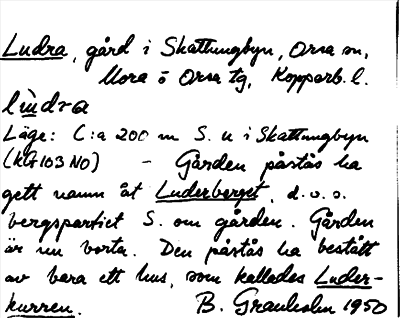 Ludra, gård i Skattungbyn, Orsa sn,
Mora o Orsa tg, Kopparb. l.
lùdra
Läge: C:a 200 m S. u i Skattungbyn
(kbl 103 NO) - Gården påstås ha
gett namn åt Luderberget, d.v.s.
bergspartiet S. om gården. Gården
är nu borta. Den påstås ha bestått
av bara ett hus, som kallades Luder-
kurren. B. Granholm 1950